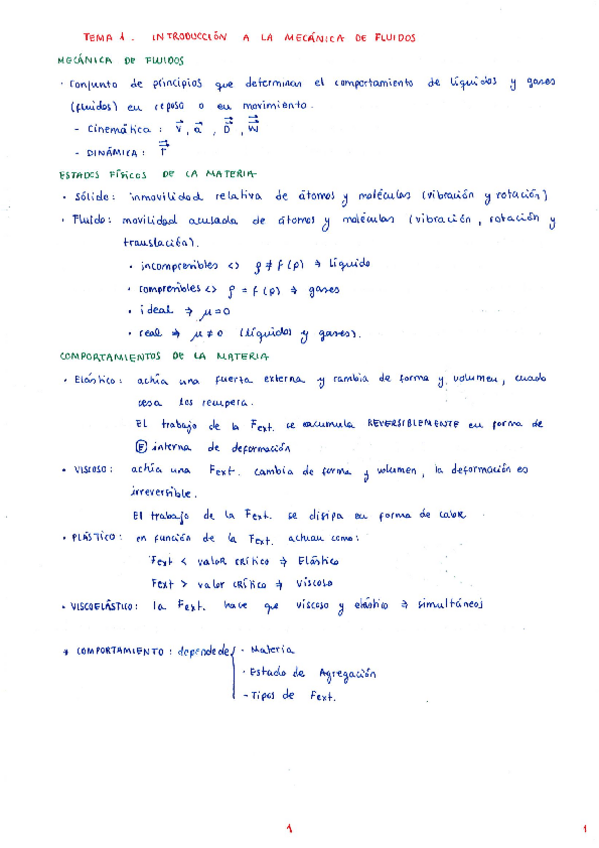 TEMA 1. INTRODUCCIÓN A LA MECÁNICA DE FLUIDOS
MECÁNICA DE FLUIDOS
· Conjunto de principios que determinan el comportamiento de líquidos y gases
(fluidos) en reposo o en movimiento.
- Cinemática : v⃗, a⃗, D⃗⃗, W⃗⃗
- DINÁMICA :
ESTADOS FÍSICOS DE LA MATERIA
· Sólido: inmovilidad relativa de átomos y moléculas (vibración y rotación)
· Fluido: movilidad acusada de átomos y moléculas (vibración, rotación y
translación).
· incompresibles <> ρ ≠ f(p) ⇒ líquido
· compresibles <> ρ = f(p) ⇒ gases
· ideal ⇒ μ=0
· real ⇒ μ≠0 (líquidos y gases).
COMPORTAMIENTOS DE LA MATERIA
· Elástico: actúa una fuerza externa y cambia de forma y volumen, cuado
cesa los recupera.
El trabajo de la Fext. se acumula REVERSIBLEMENTE en forma de
E interna de deformación
· VISCOSO: actúa una Fext. cambia de forma y volumen, la deformación es
irreversible.
El trabajo de la Fext. se disipa en forma de calor
· PLÁSTICO: en función de la Fext. actuan como:
Fext < valor crítico ⇒ Elástico
Fext > valor crítico ⇒ Viscoso
· VISCOELÁSTICO: la Fext. hace que viscoso y elástico ⇒ simultáneos
→ COMPORTAMIENTO : depende de { · Materia
· Estado de Agregación
- Tipos de Fext.
1 1